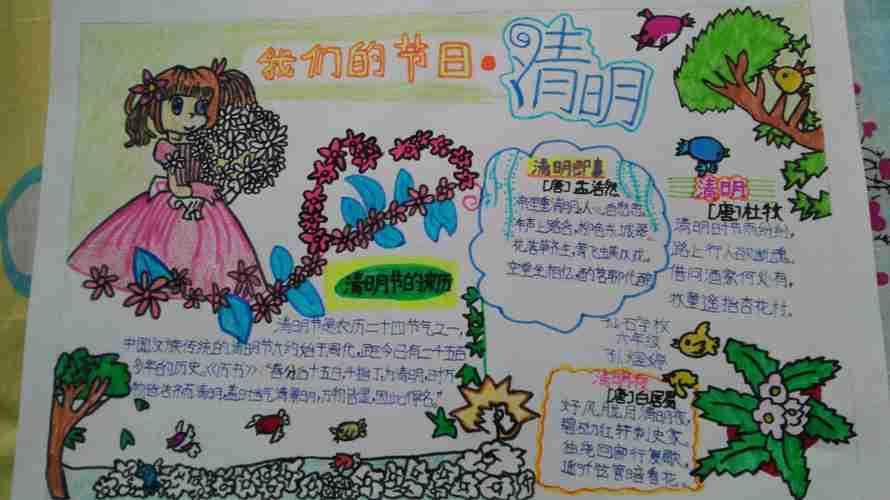 我们的节日·清明
清明节的来历
清明节是农历二十四节气之一,
中国汉族传统的清明节大约始于周代,距今已有二千五百
多年的历史。《历书》:"春分后十五日,斗指丁,为清明,时万
物皆洁齐而清明,盖时当气清景明,万物皆显,因此得名。"
清明即事
[唐]孟浩然
帝里重清明,人心自愁思。
车声上路合,柳色东城翠。
花落草齐生,莺飞蝶双戏。
空堂坐相忆,酌茗聊代醉
清明
[唐]杜牧
清明时节雨纷纷,
路上行人欲断魂。
借问酒家何处有,
牧童遥指杏花村。
学校
六年级
清明夜
[唐]白居易
好风胧月清明夜,
碧砌红轩刺史家。
独绕回廊行复歇,
遥听弦管暗看花。